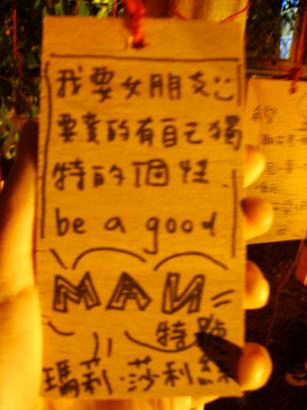 我要女朋友
要真的有自己獨
特的個性.
be a good
MAN
特
瑪莉.莎利